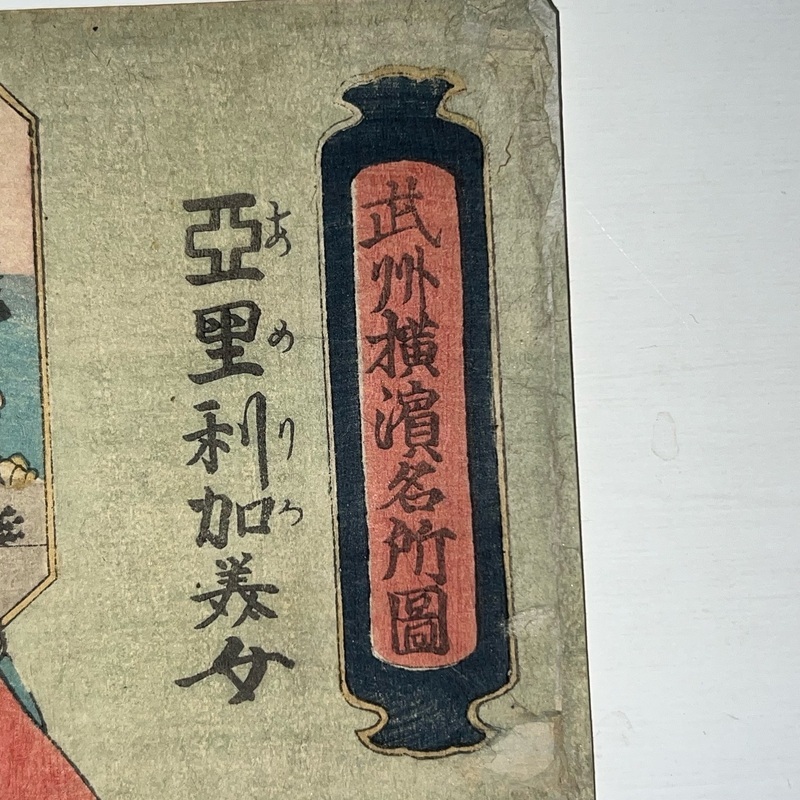 武州横濱名所圖
亞里利加美女
あめりか